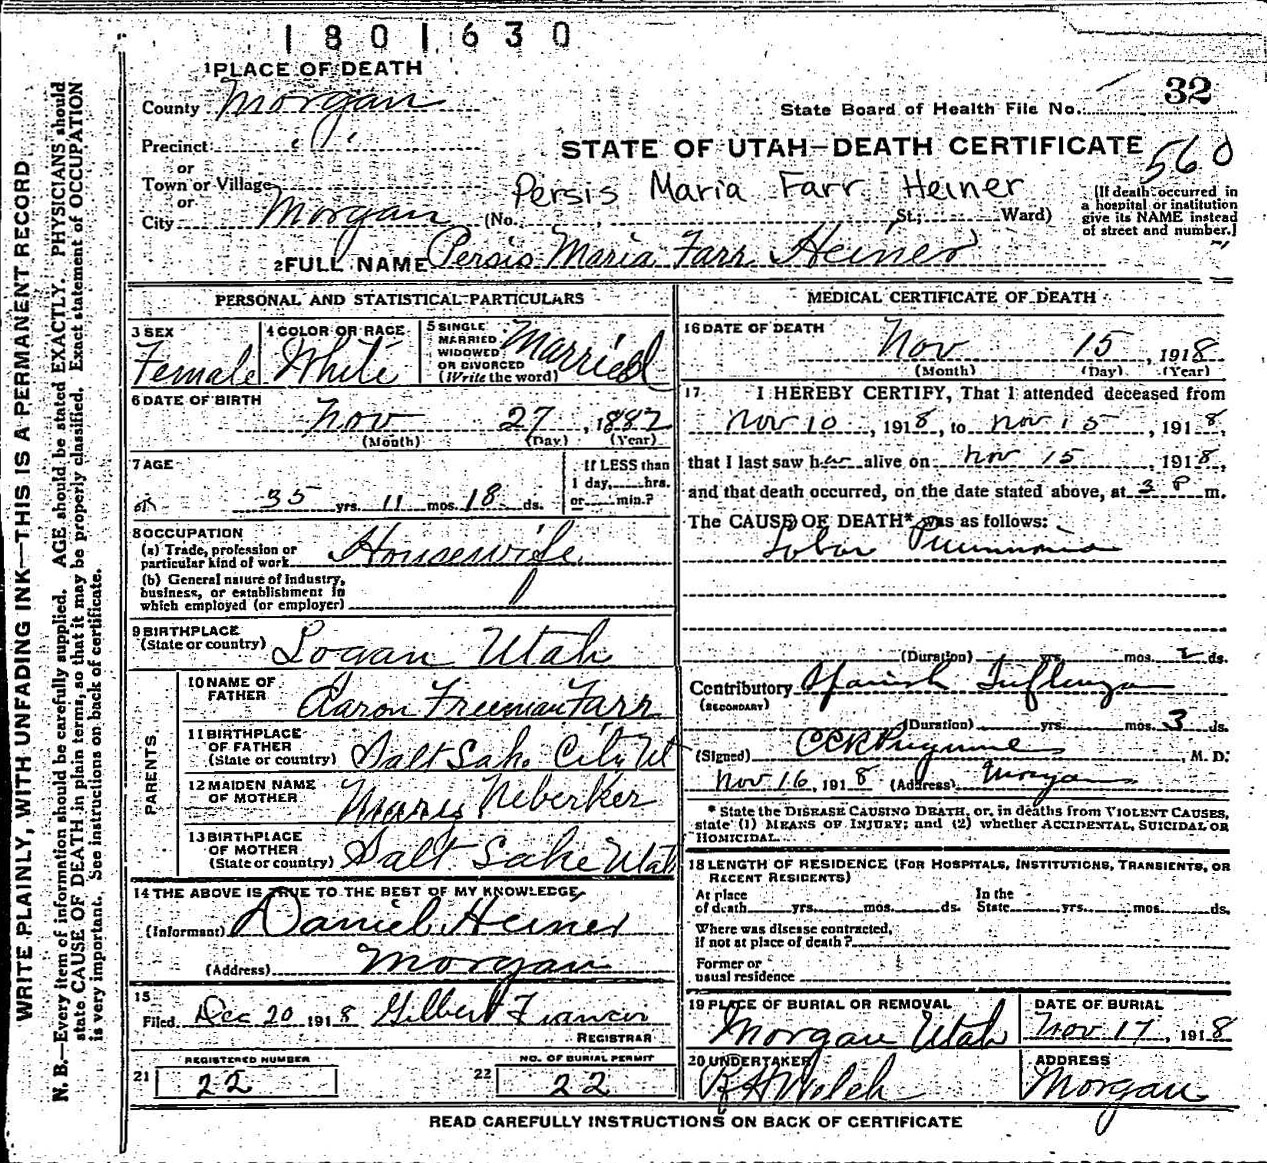 1801630
1 PLACE OF DEATH
County Morgan
State Board of Health File No. 32
Precinct
STATE OF UTAH—DEATH CERTIFICATE
560
or
Town or Village
Persis Maria Farr Heiner
or
City Morgan (No. St.; Ward)
(If death occurred in
a hospital or institution
give its NAME instead
of street and number.]
2 FULL NAME Persis Maria Farr Heiner
PERSONAL AND STATISTICAL PARTICULARS
3 SEX Female
4 COLOR OR RACE White
5 SINGLE
MARRIED
WIDOWED
OR DIVORCED
(Write the word) Married
6 DATE OF BIRTH
Nov 27, 1882
(Month) (Day) (Year)
7 AGE
35 yrs. 11 mos. 18 ds.
If LESS than
1 day, hrs.
or min.?
8 OCCUPATION
(a) Trade, profession or
particular kind of work Housewife
(b) General nature of Industry,
business, or establishment in
which employed (or employer)
9 BIRTHPLACE
(State or country) Logan Utah
PARENTS
10 NAME OF
FATHER Aaron Freeman Farr
11 BIRTHPLACE
OF FATHER
(State or country) Salt Lake City Ut
12 MAIDEN NAME
OF MOTHER Neberker
13 BIRTHPLACE
OF MOTHER
(State or country) Salt Lake Utah
14 THE ABOVE IS TRUE TO THE BEST OF MY KNOWLEDGE
(Informant) Daniel Heiner
(Address) Morgan
15
Filed Dec 20 1918 Gilbert Francis
REGISTRAR
REGISTERED NUMBER
21 22
NO. OF BURIAL PERMIT
22 22
MEDICAL CERTIFICATE OF DEATH
16 DATE OF DEATH
Nov 15, 1918
(Month) (Day) (Year)
17 I HEREBY CERTIFY, That I attended deceased from
Nov 10, 1918, to Nov 15, 1918,
that I last saw her alive on Nov 15, 1918,
and that death occurred, on the date stated above, at 3 P m.
The CAUSE OF DEATH* was as follows:
Lobar Pneumonia
(Duration) yrs. mos. 2 ds.
Contributory Spanish Influenza
(SECONDARY)
(Duration) yrs. mos. 3 ds.
(Signed) M. D.
Nov 16, 1918 (Address) Morgan
* State the DISEASE CAUSING DEATH, or, in deaths from VIOLENT CAUSES,
state (1) MEANS OF INJURY; and (2) whether ACCIDENTAL, SUICIDAL OR
HOMICIDAL.
18 LENGTH OF RESIDENCE (FOR HOSPITALS, INSTITUTIONS, TRANSIENTS, OR
RECENT RESIDENTS)
At place
of death yrs. mos. ds.
In the
State yrs. mos. ds.
Where was disease contracted,
if not at place of death?
Former or
usual residence
19 PLACE OF BURIAL OR REMOVAL
Morgan Utah
DATE OF BURIAL
Nov 17, 1918
20 UNDERTAKER
R H Welch
ADDRESS
Morgan
READ CAREFULLY INSTRUCTIONS ON BACK OF CERTIFICATE
WRITE PLAINLY, WITH UNFADING INK—THIS IS A PERMANENT RECORD
N. B.—Every item of information should be carefully supplied. AGE should be stated EXACTLY. PHYSICIANS should
state CAUSE OF DEATH in plain terms, so that it may be properly classified. Exact statement of OCCUPATION
is very important. See instructions on back of certificate.